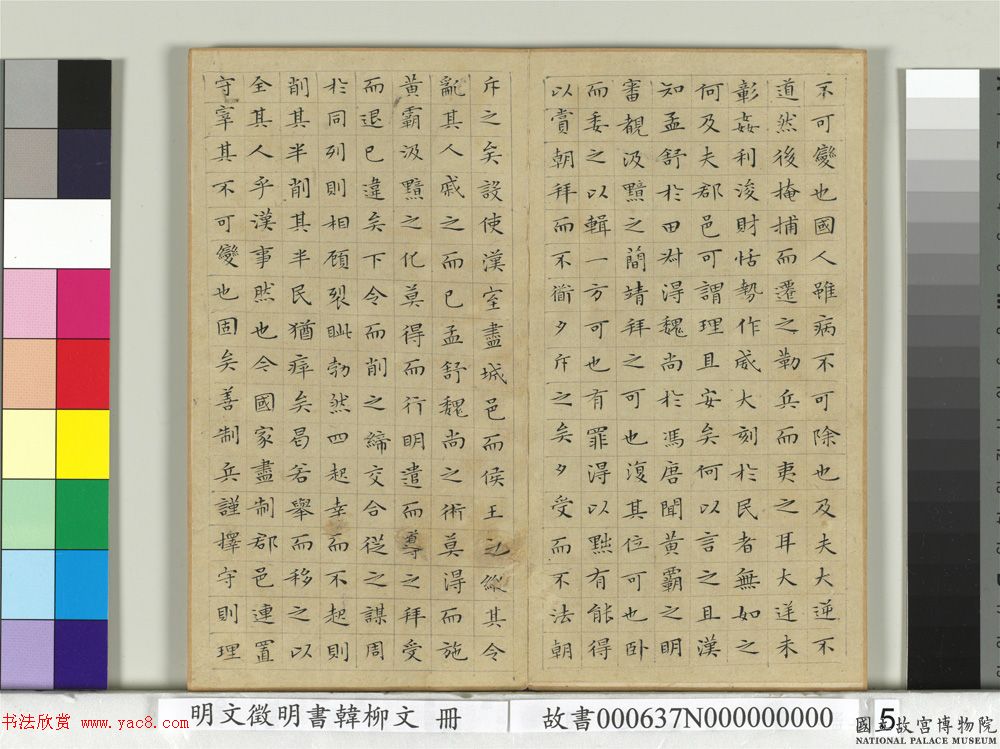 不可變也國人雖病不可除也及夫大逆不
道然後掩捕而遷之勒兵而夷之耳大逆未
彰姦利浚財怙勢作威大刻於民者無如之
何及夫郡邑可謂理且安矣何以言之且漢
知孟舒於田叔得魏尚於馮唐聞黃霸之明
審覩汲黯之簡靖拜之可也復其位可也卧
而委之以輯一方可也有罪得以黜有能得
以賞朝拜而不衜夕斥之矣夕受而不法朝
斥之矣設使漢室盡城邑而侯王之縱其令
亂其人戚之而已孟舒魏尚之術莫得而施
黃霸汲黯之化莫得而行明遣而導之拜受
而退已違矣下令而削之締交合從之謀周
於同列則相顧裂眦勃然四起幸而不起則
削其半削其半民猶瘁矣曷若舉而移之以
全其人乎漢事然也今國家盡制郡邑連置
守宰其不可變也固矣善制兵謹擇守則理
明文徵明書韓柳文 冊
故書000637N000000000
5
書法欣赏 www.yac8.com
國立故宮博物院
NATIONAL PALACE MUSEUM